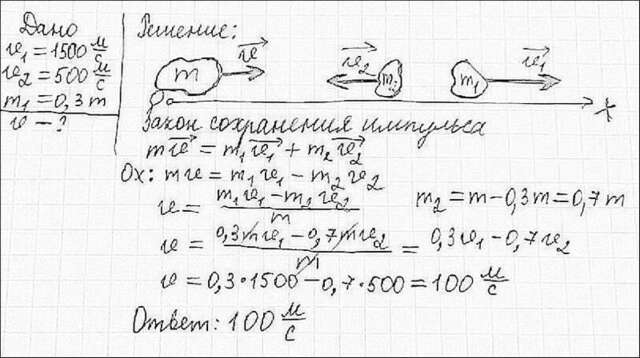 Дано
υ₁ = 1500 м/с
υ₂ = 500 м/с
m₁ = 0,3 m
υ – ?
Решение:
m υ⃗ υ⃗₂ m₂ m₁ υ⃗₁
O X
Закон сохранения импульса
mυ⃗ = m₁υ⃗₁ + m₂υ⃗₂
Ox: mυ = m₁υ₁ – m₂υ₂
υ = (m₁υ₁ – m₂υ₂)/m m₂ = m – 0,3m = 0,7 m
υ = (0,3mυ₁ – 0,7mυ₂)/m = 0,3υ₁ – 0,7υ₂
υ = 0,3·1500 – 0,7·500 = 100 м/с
Ответ: 100 м/с